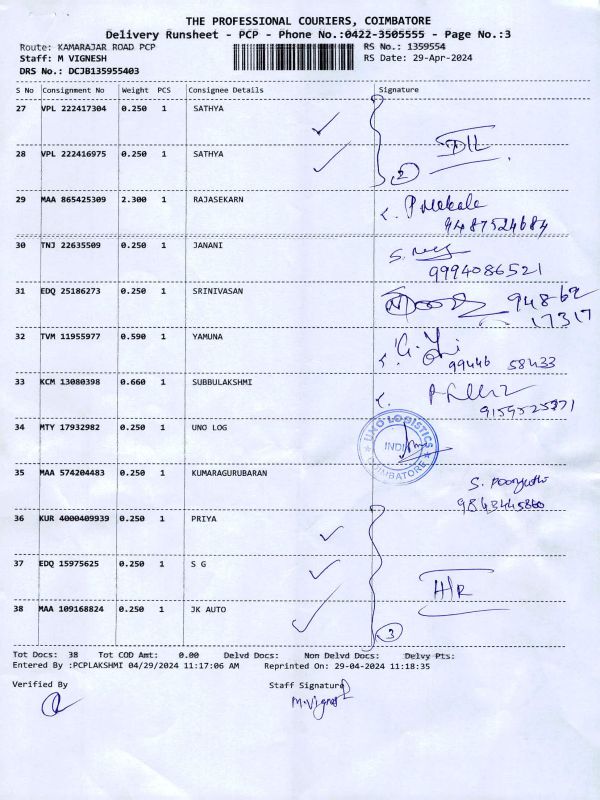 THE PROFESSIONAL COURIERS, COIMBATORE
Delivery Runsheet - PCP - Phone No.:0422-3505555 - Page No.:3
Route: KAMARAJAR ROAD PCP RS No.: 1359554
Staff: M VIGNESH RS Date: 29-Apr-2024
DRS No.: DCJB135955403
S No Consignment No Weight PCS Consignee Details Signature
27 VPL 222417304 0.250 1 SATHYA
28 VPL 222416975 0.250 1 SATHYA
2
29 MAA 865425309 2.300 1 RAJASEKARN
9487524684
30 TNJ 22635509 0.250 1 JANANI
9994086521
31 EDQ 25186273 0.250 1 SRINIVASAN 94862
17317
32 TVM 11955977 0.590 1 YAMUNA
99446 58433
33 KCM 13080398 0.660 1 SUBBULAKSHMI
34 MTY 17932982 0.250 1 UNO LOG
UNO LOGISTICS
INDIA
COIMBATORE
35 MAA 574204483 0.250 1 KUMARAGURUBARAN
36 KUR 4000409939 0.250 1 PRIYA
37 EDQ 15975625 1 S G
38 MAA 109168824 0.250 1 JK AUTO
3
Tot Docs: 38 Tot COD Amt: 0.00 Delvd Docs: Non Delvd Docs: Delvy Pts:
Entered By :PCPLAKSHMI 04/29/2024 11:17:06 AM Reprinted On: 29-04-2024 11:18:35
Verified By Staff Signature
M.Vignesh